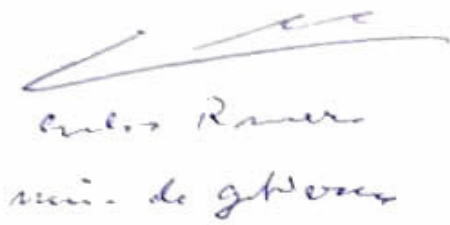 Carlos Romero
min. de gobierno